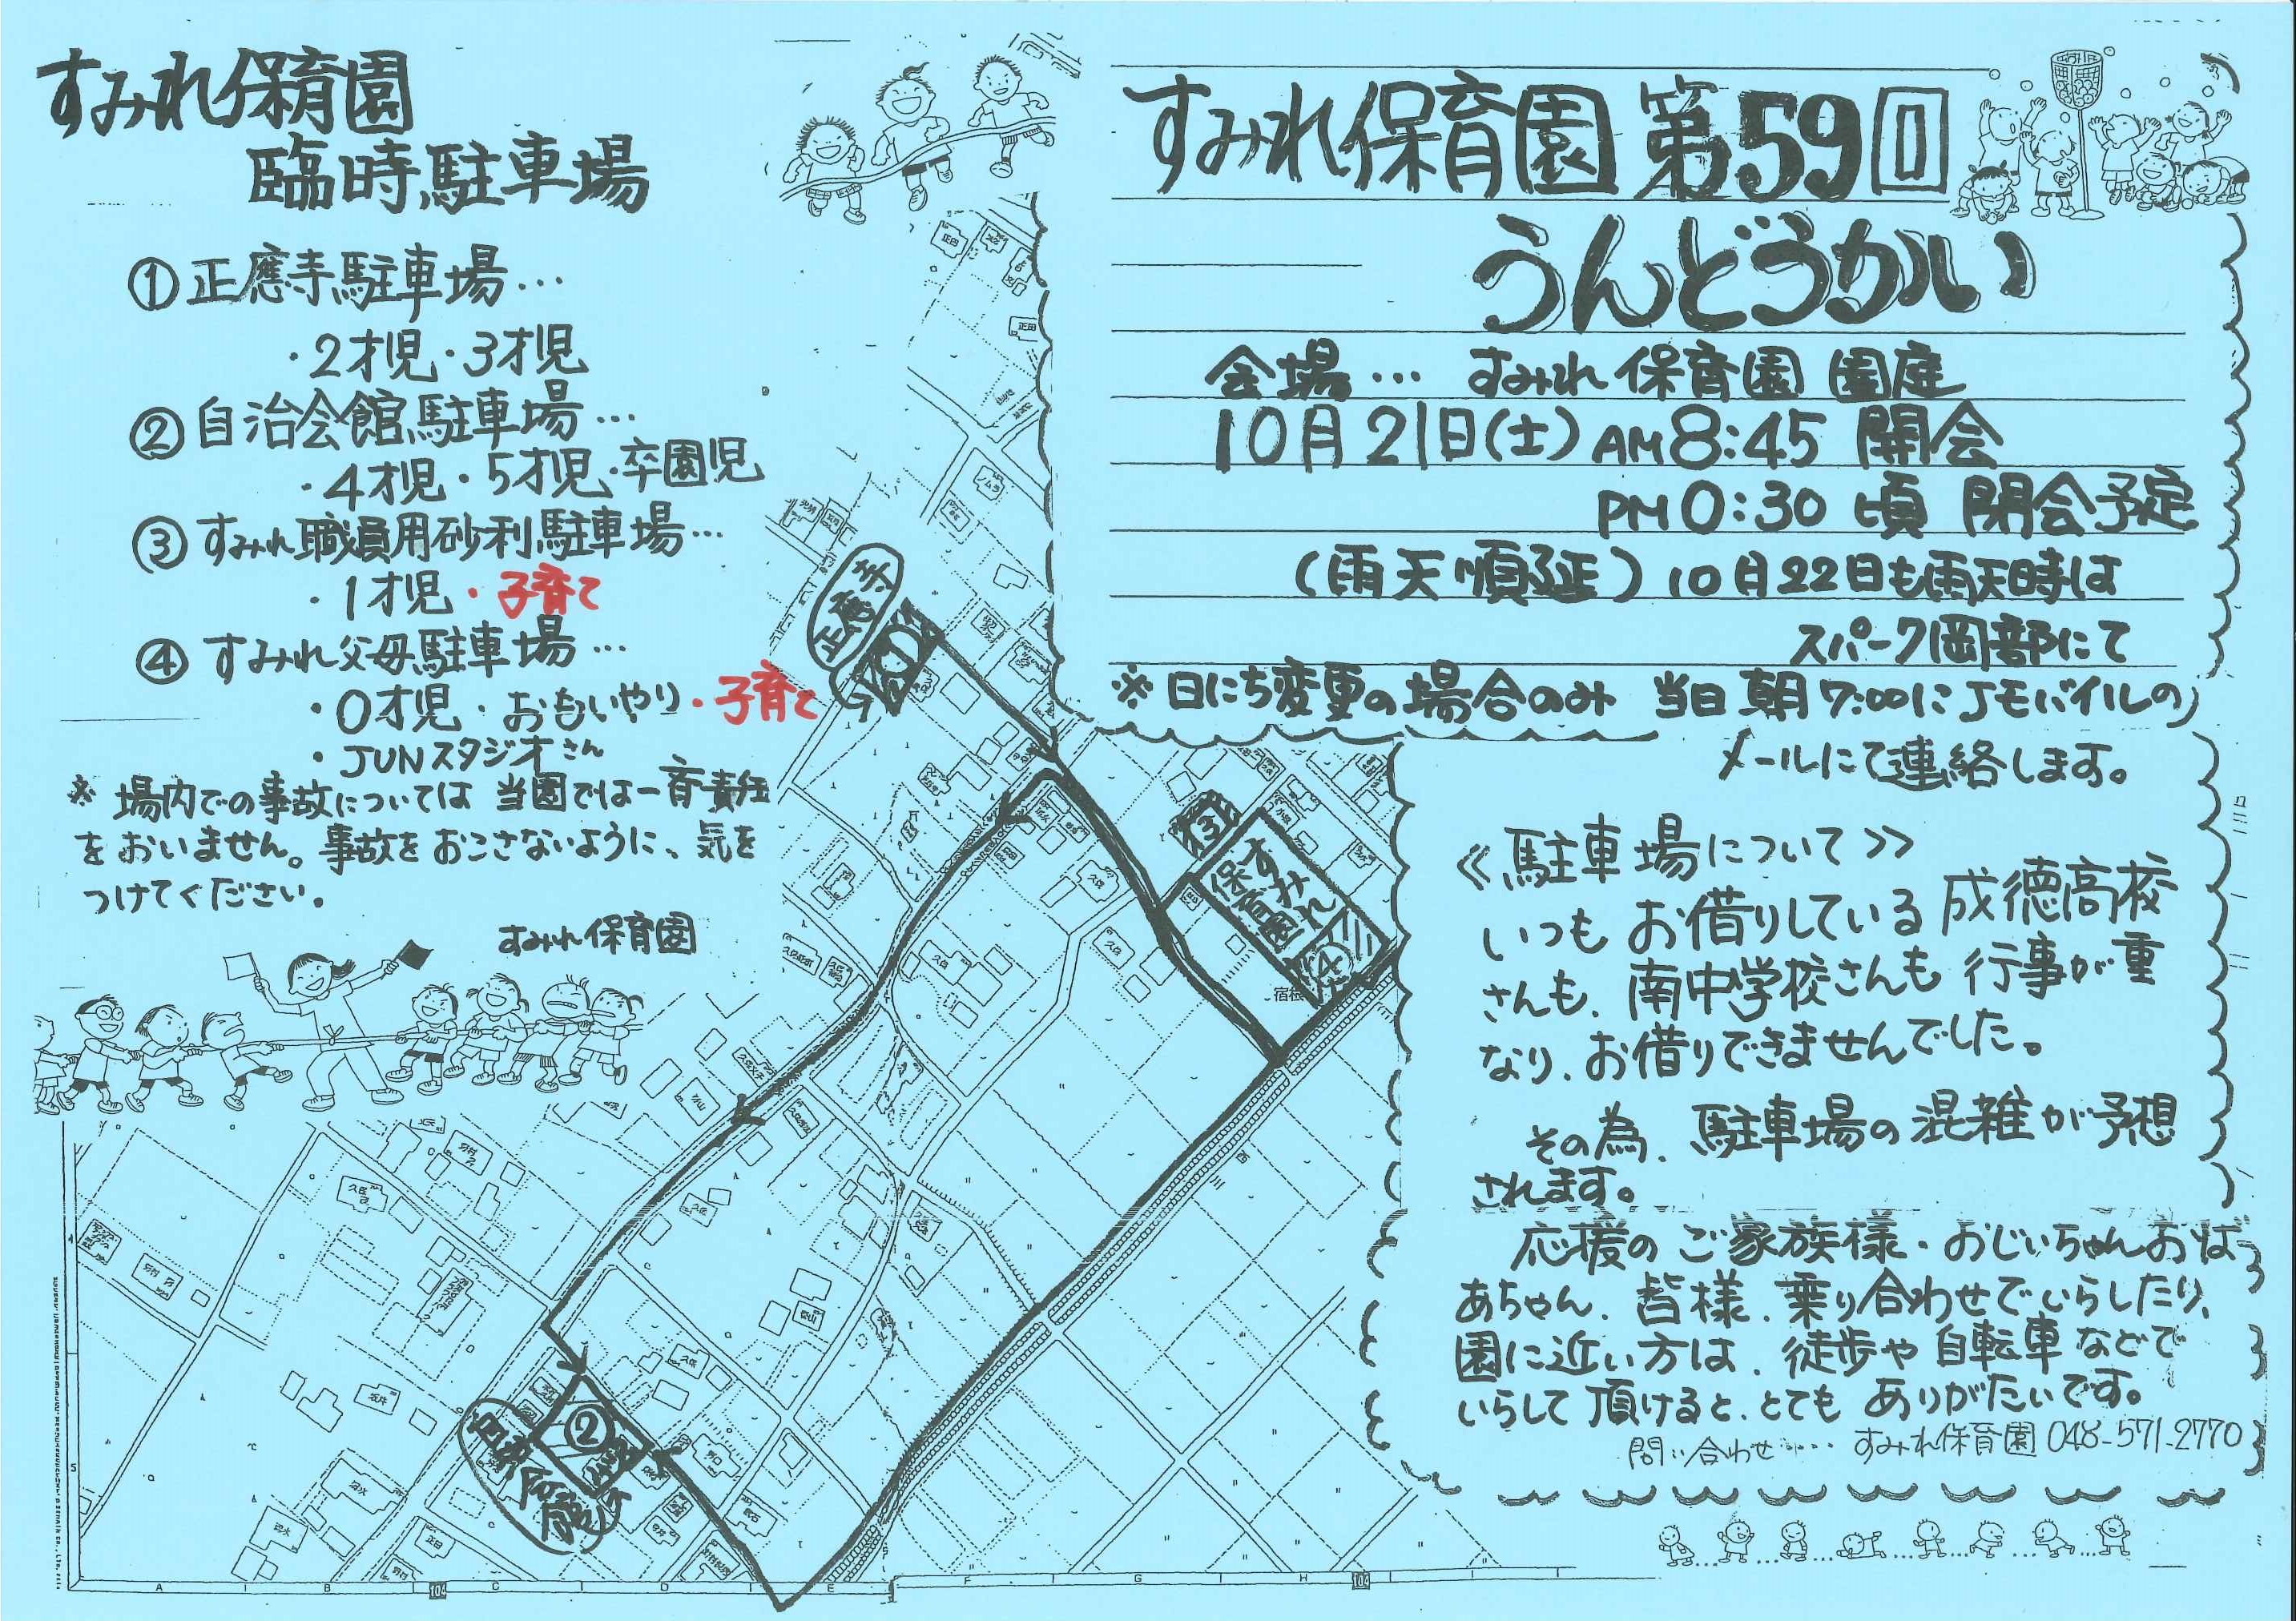 すみれ保育園
臨時駐車場
①正應寺駐車場…
・2才児・3才児
②自治会館駐車場…
・4才児・5才児・卒園児
③すみれ職員用砂利駐車場…
・1才児・子育て
④すみれ父母駐車場…
・0才児・おもいやり・子育て
・JUNスタジオさん
※場内での事故については当園では一斉責任
をおいません。事故をおこさないように、気を
つけてください。
すみれ保育園
すみれ保育園 第59回
うんどうかい
会場… すみれ保育園 園庭
10月21日(土)AM8:45 開会
PM0:30頃 閉会予定
(雨天順延)10月22日も雨天時は
スパーク岡部にて
※日にち変更の場合のみ 当日朝7:00にJモバイルの
メールにて連絡します。
≪駐車場について≫
いつもお借りしている成徳高校
さんも、南中学校さんも行事が重
なり、お借りできませんでした。
その為、駐車場の混雑が予想
されます。
応援のご家族様・おじいちゃんおば
あちゃん、皆様、乗り合わせでいらしたり、
園に近い方は、徒歩や自転車などで
いらして頂けると、とてもありがたいです。
問い合わせ…… すみれ保育園 048-571-2770
正應寺
①
③
すみれ
保育園
④
宿根
②
自治
会館
A
B
104
C
D
E
F
G
H
104